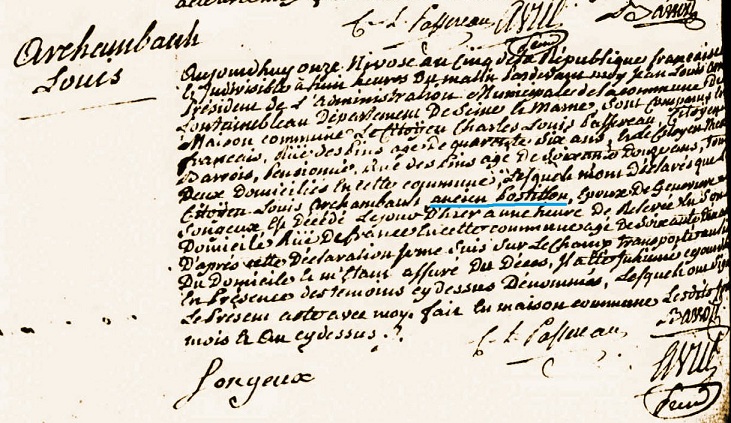 C. L. Passereau
Archambault
Louis
Aujourdhuy onze Nivose an Cinq de la Republique francaise
Indivisible à huit heures du matin pardevant moy Jean Louis
President de L'administration Municipale de la commune de
fontainebleau Département de Seine et Marne, sont comparus en la
Maison commune Le Citoyen Charles Louis Passereau, Citoyen
francais, Rue des pins agé de quarente six ans, et le Citoyen
Barrois, pensionné, Rue des pins agé de soixante onze ans, tous
Deux Domiciliés en cette commune, Lesquels mont déclarés que Le
Citoyen Louis Archambault, ancien postillon, Epoux de Genevieve
Songeux Est décédé Le jour d'hier a une heure de Relevée En Son
Domicile Rüe de france en cette commune agé de Soixante
D'après cette Déclaration je me Suis Sur Le champ Transporté au lieu
Du Domicile et m'étant assuré du Décès, J'ai
En Présence des temoins cy dessus Dénommés, Lesquels ont Signé
Le Present acte avec moy. fait en maison commune Lesdits jour
mois et an cy dessus.
C. L. Passereau
Barrois
Songeux